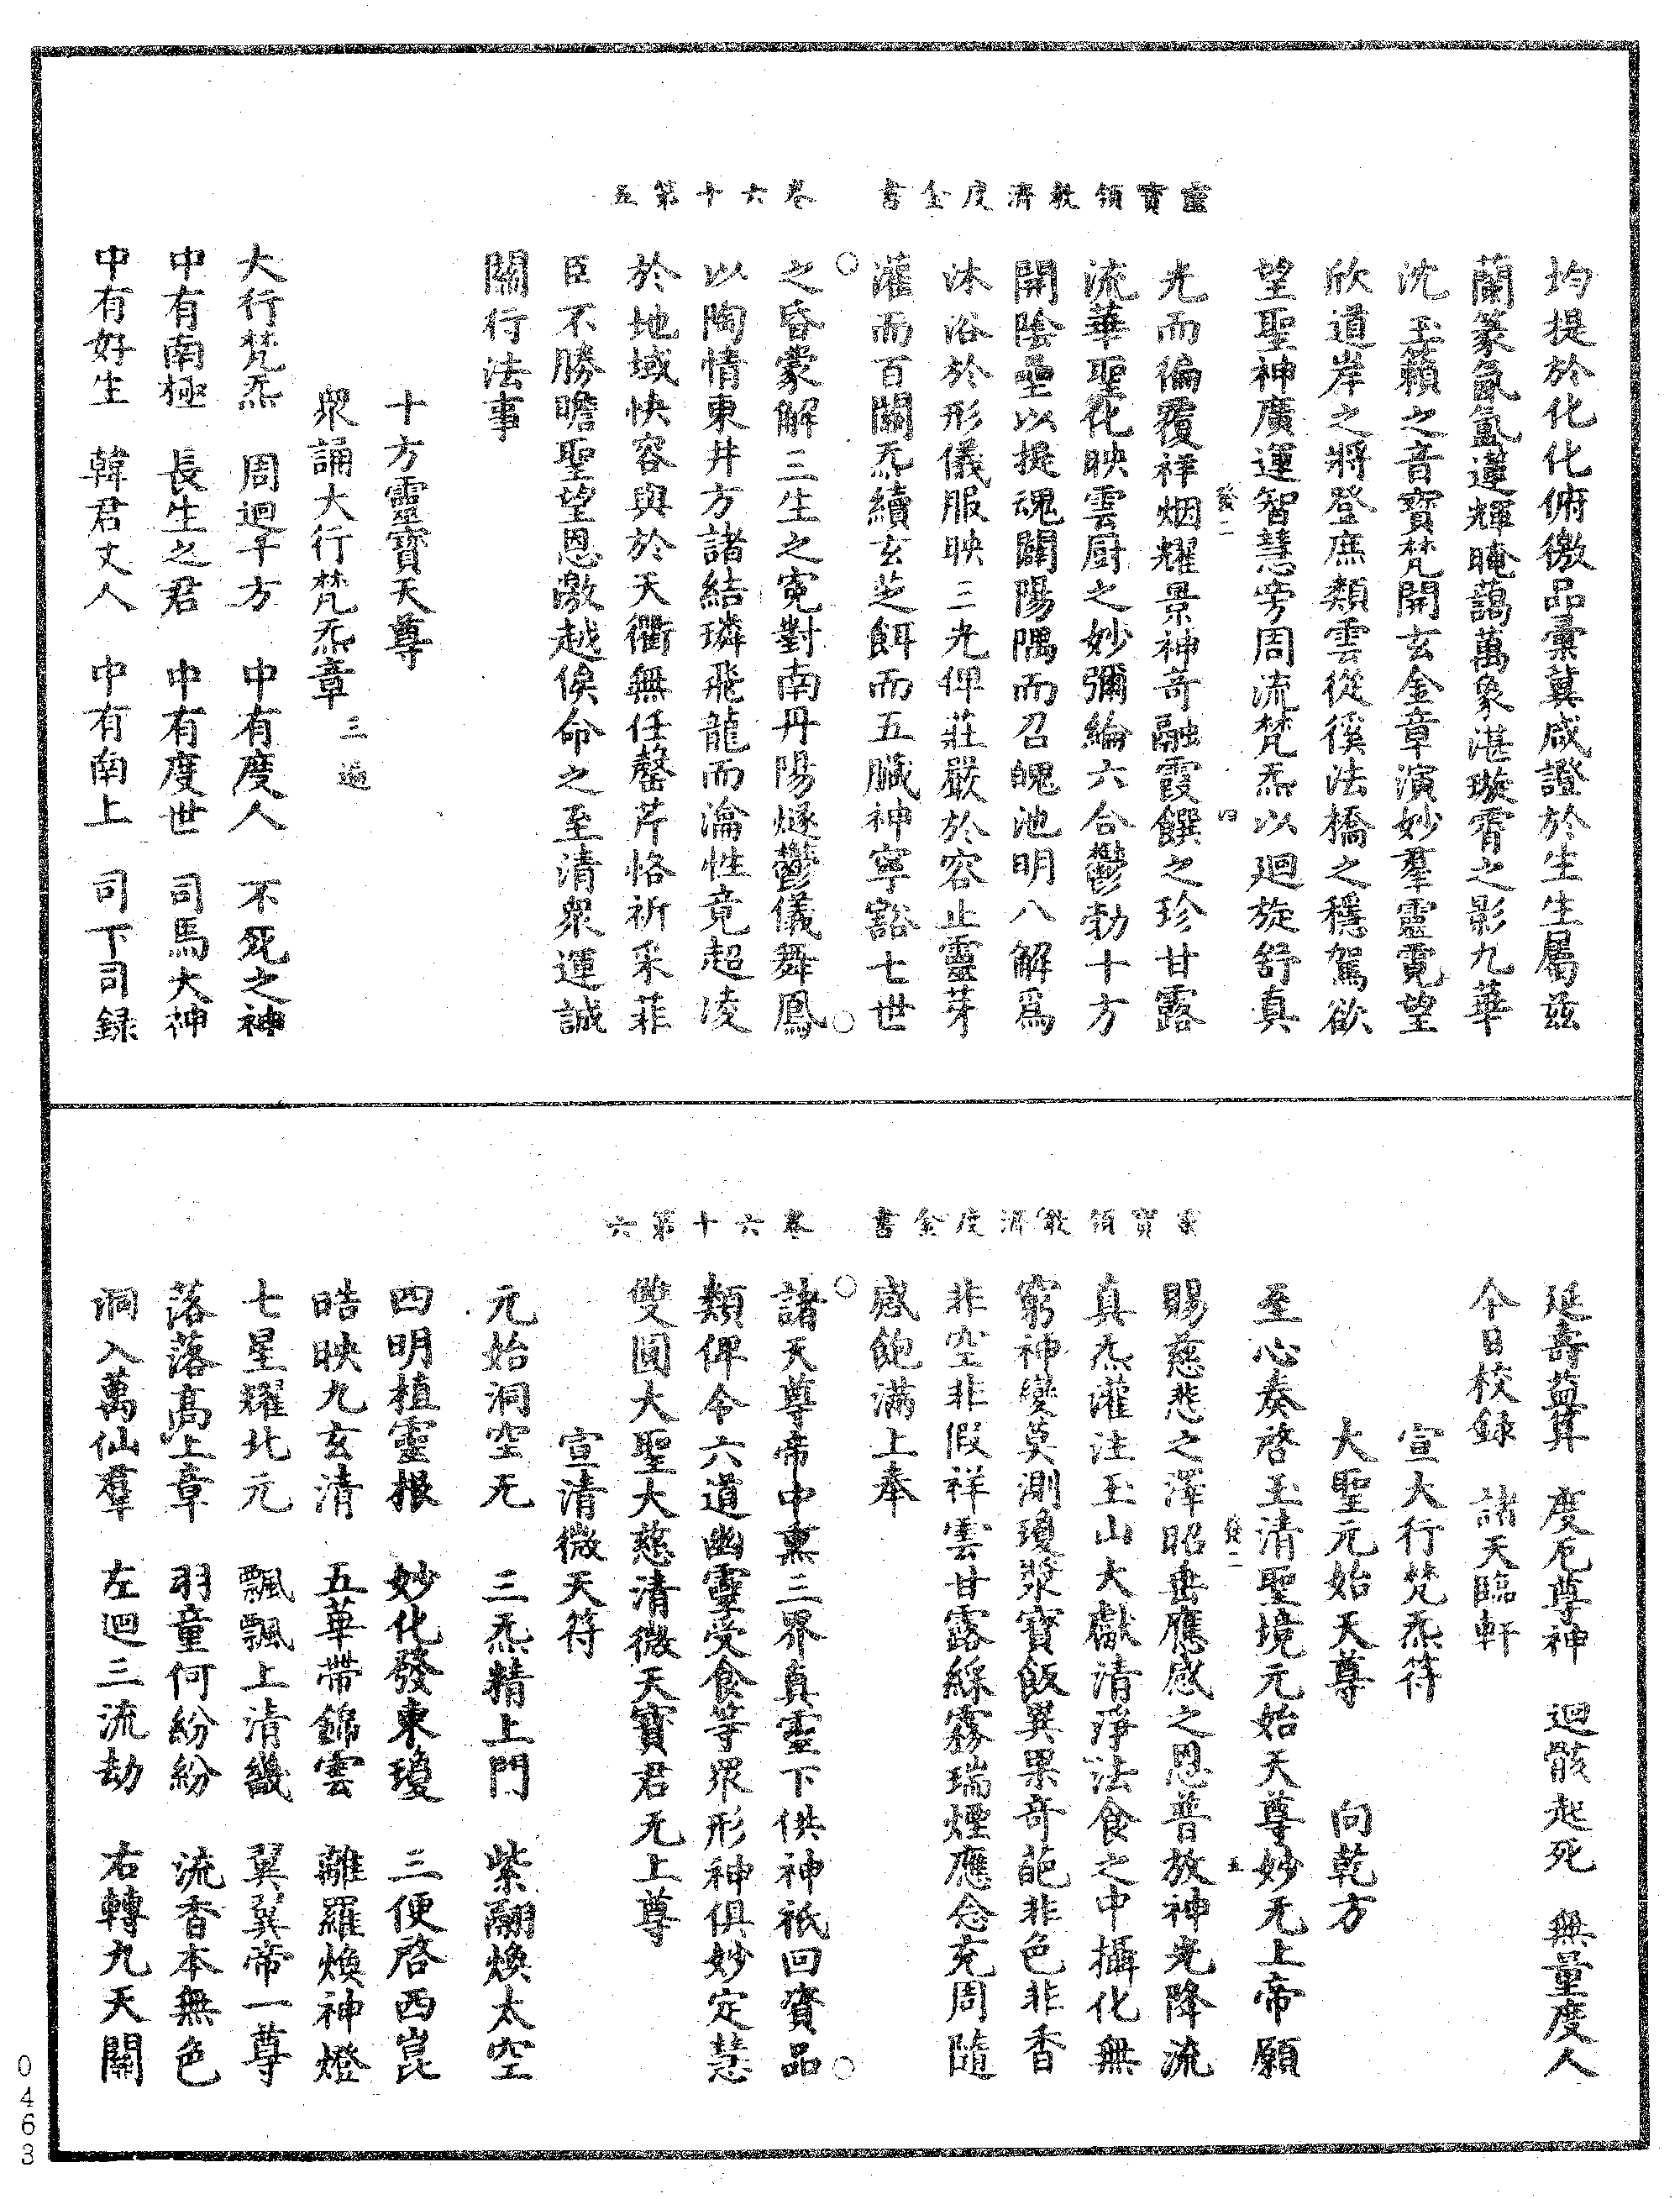 靈寶領教濟度金書　卷六十第五
均提於化化俯徼品彙冀咸證於生生屬茲
蘭篆氤氳瓊輝晻藹萬象湛璇霄之影九華
沈玉籟之音寶梵開玄金章演妙羣靈霓望
欣道岸之將登庶類雲從徯法橋之穩駕欲
望聖神廣運智慧旁周流梵炁以迴旋舒真
光而徧覆祥烟耀景神奇融霞饌之珍甘露
流華聖化映雲厨之妙彌綸六合鬱勃十方
開陰壘以提魂闢陽隅而召魄池明八解爲
沐浴於形儀服映三光俾莊嚴於容止靈芽
灌而百關炁續玄芝餌而五臟神寧豁七世
之昏蒙解三生之寃對南丹陽燧鬱儀舞鳳
以陶情東井方諸結璘飛龍而瀹性竟超凌
於地域快容與於天衢無任罄芹恪祈采菲
臣不勝瞻聖望恩激越俟命之至清衆運誠
關行法事
十方靈寶天尊
衆誦大行梵炁章三遍
大行梵炁　周迴十方　中有度人　不死之神
中有南極　長生之君　中有度世　司馬大神
中有好生　韓君丈人　中有南上　司下司録
靈寶領教濟度金書　卷六十第六
延壽益筭　度厄尊神　迴骸起死　無量度人
今日校録　諸天臨軒
宣大行梵炁符
大聖元始天尊　向乾方
至心奏啓玉清聖境元始天尊妙无上帝願
賜慈悲之澤昭垂應感之恩普放神光降流
真炁灌注玉山大獻清淨法食之中攝化無
窮神變莫測瓊漿寶飯異果奇葩非色非香
非空非假祥雲甘露綵霧瑞煙應念充周隨
感飽滿上奉
諸天尊帝中熏三界真靈下供神祇回資品
類俾令六道幽靈受食等衆形神俱妙定慧
雙圓大聖大慈清微天寶君无上尊
宣清微天符
元始洞空无　三炁精上門　紫翮煥太空
四明植靈根　妙化發東瓊　三便啓西崑
晧映九玄清　五華帶錦雲　離羅煥神燈
七星耀北元　飄飄上清畿　翼翼帝一尊
落落高上章　羽童何紛紛　流香本無色
洞入萬仙羣　左迴三流劫　右轉九天關
0463